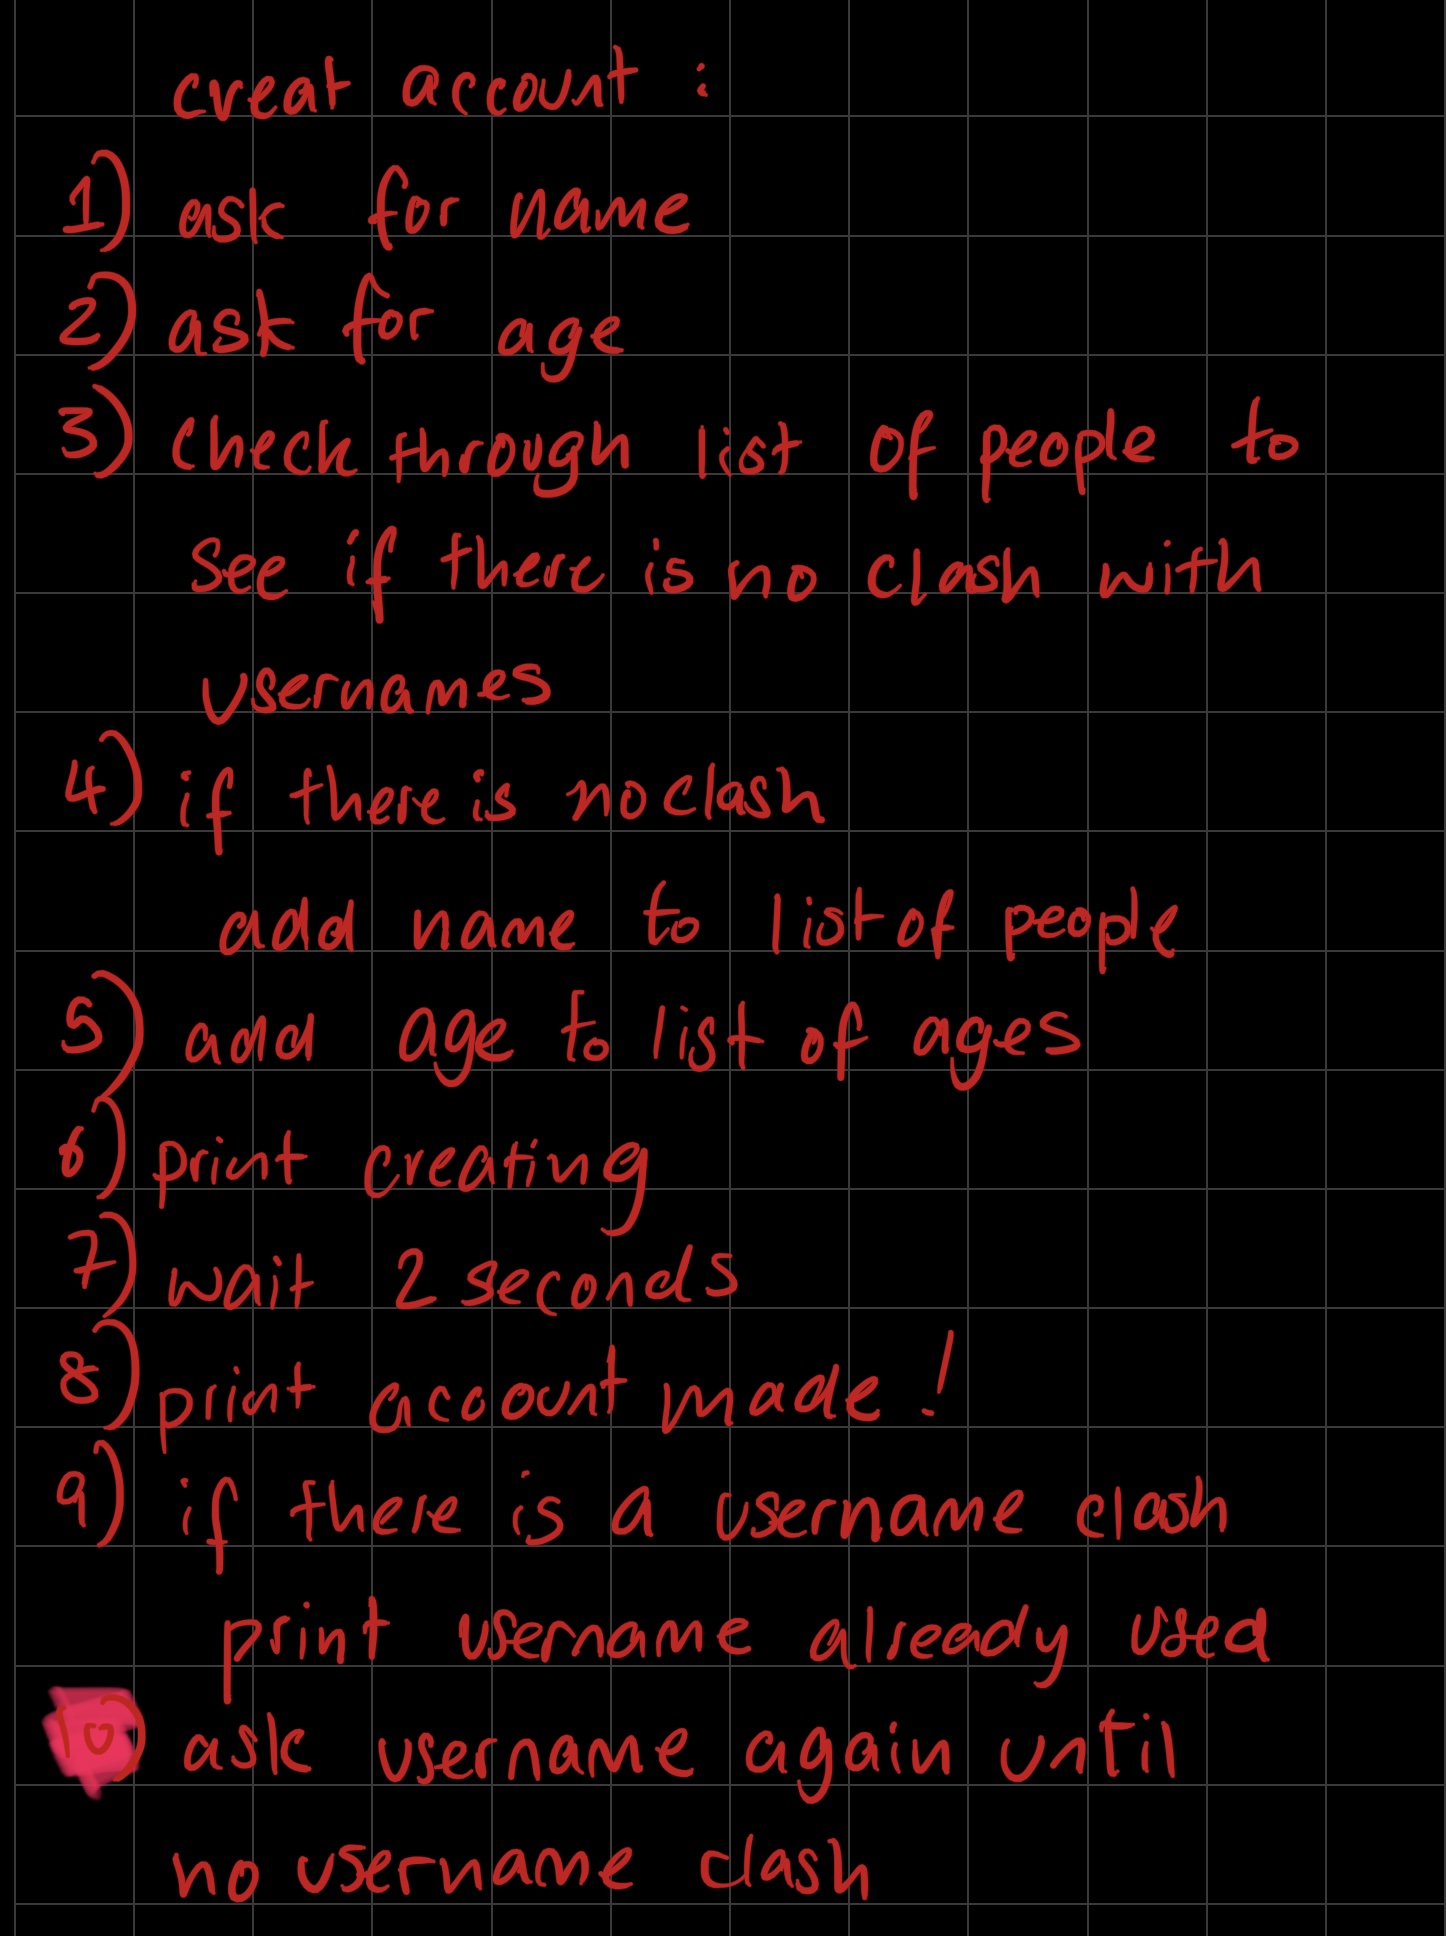 creat account :
1) ask for name
2) ask for age
3) check through list of people to
see if there is no clash with
usernames
4) if there is no clash
add name to list of people
5) add age to list of ages
6) print creating
7) wait 2 seconds
8) print account made !
9) if there is a username clash
print username already used
10) ask username again until
no username clash